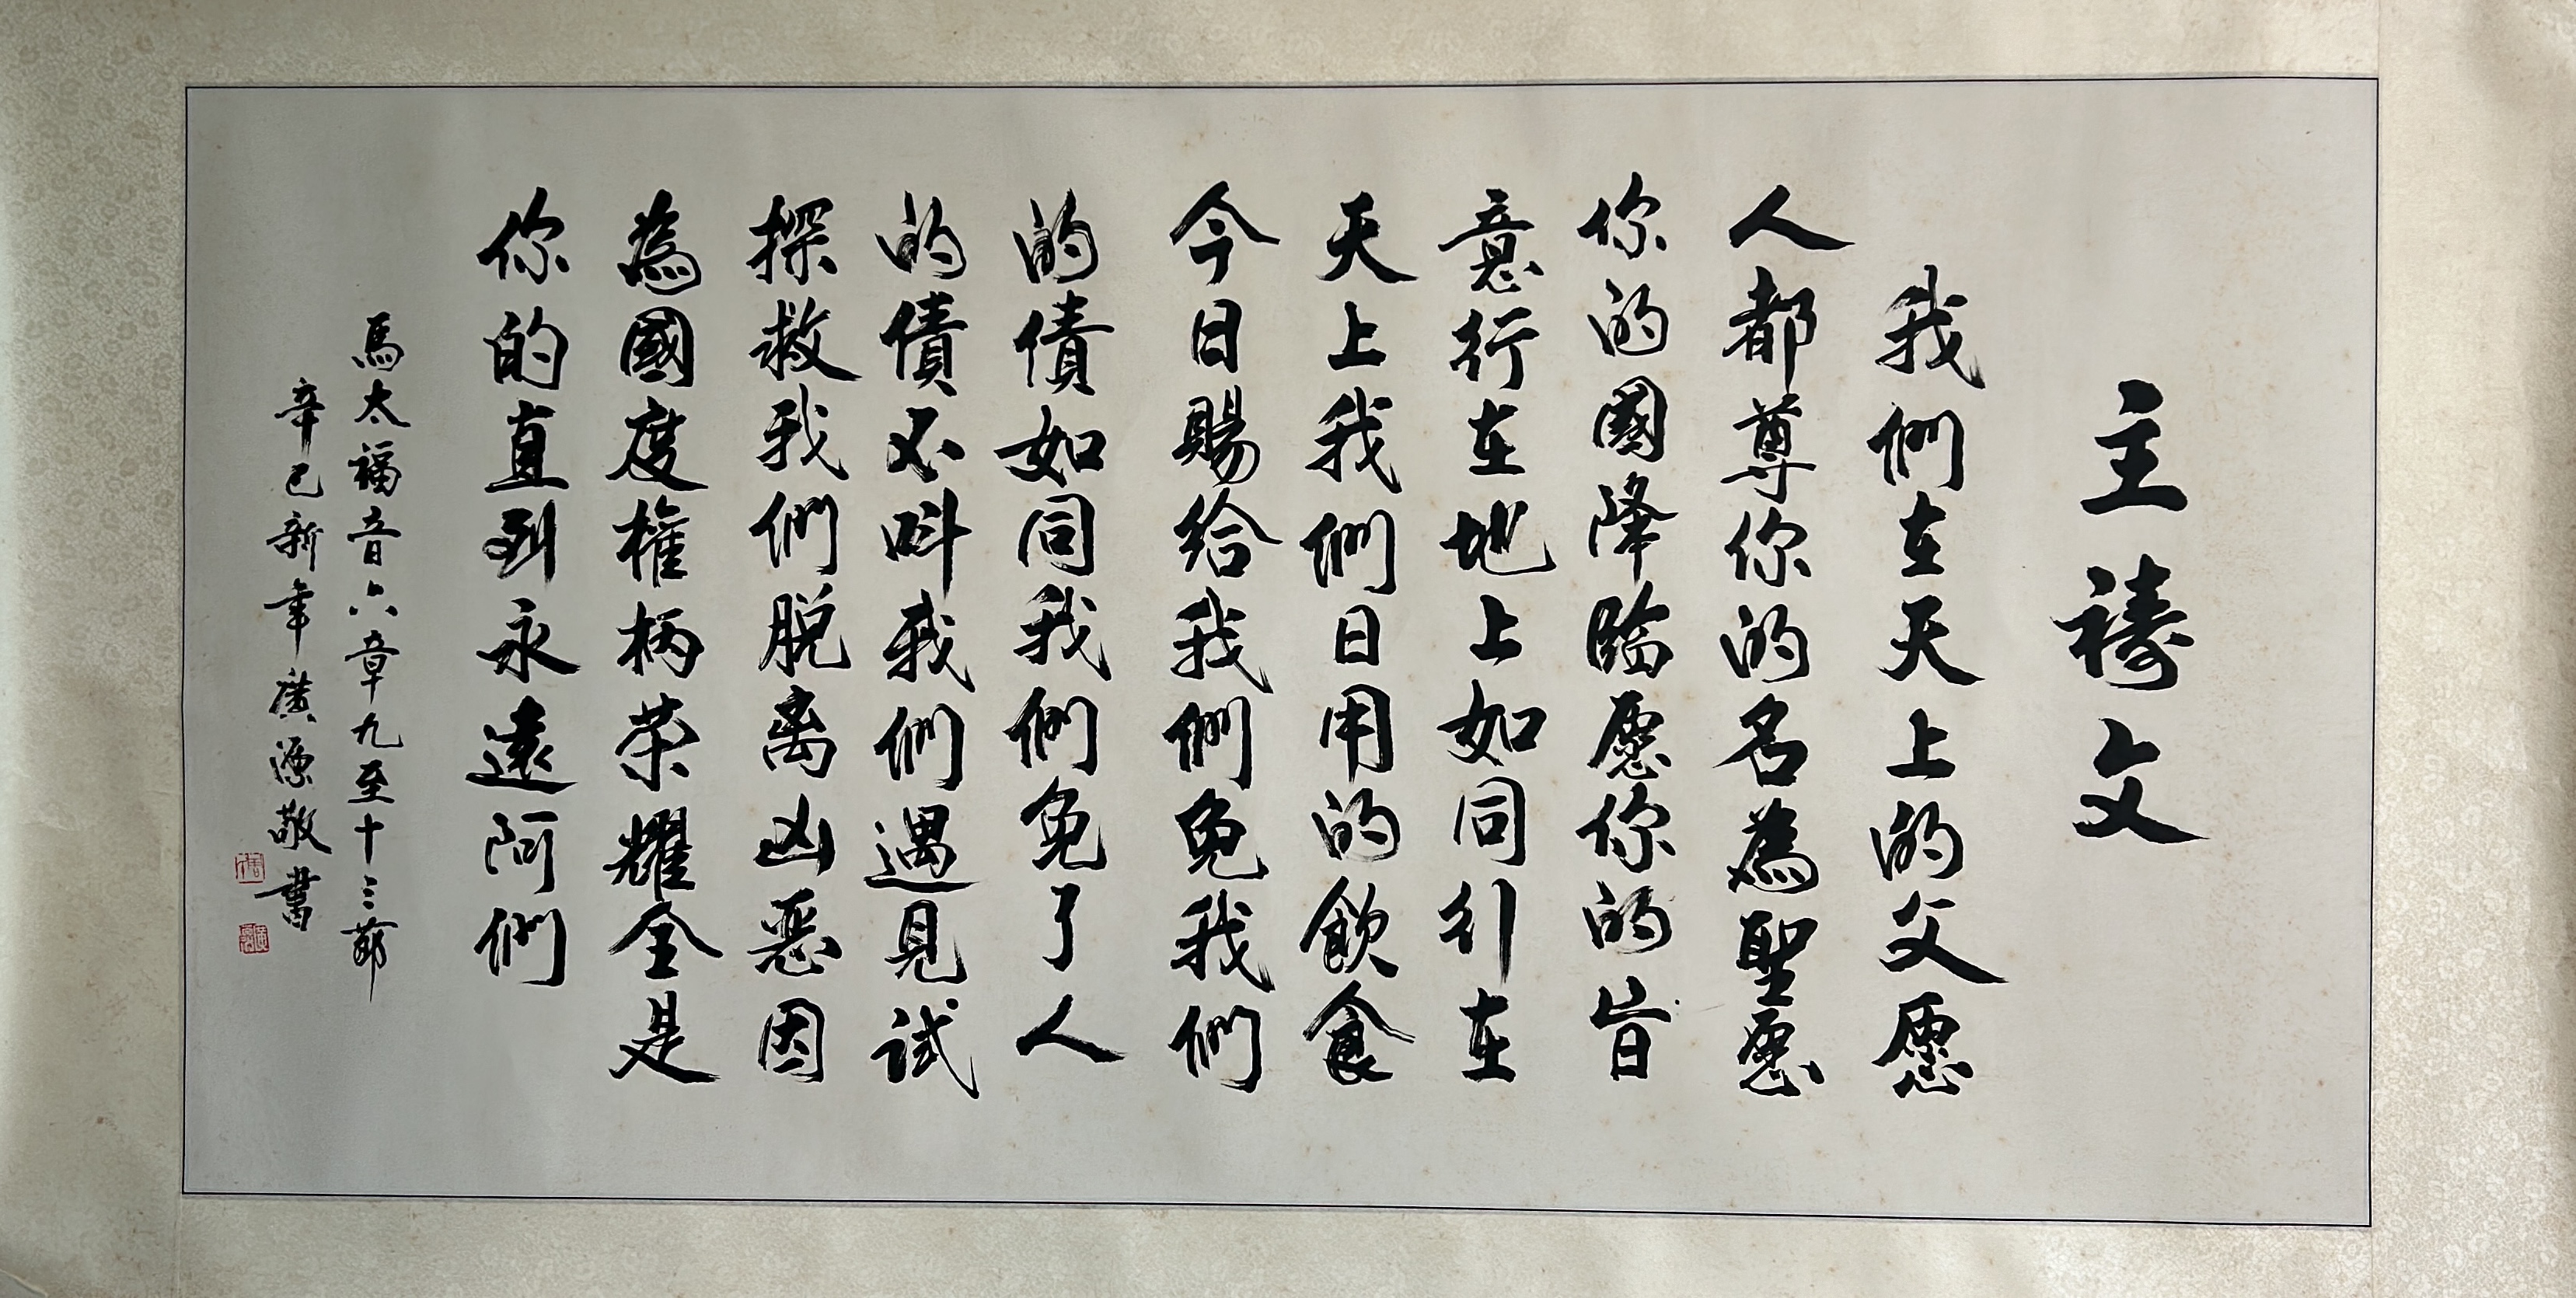 主禱文
我們在天上的父愿
人都尊你的名為聖愿
你的國降臨愿你的旨
意行在地上如同行在
天上我們日用的飲食
今日賜給我們免我們
的債如同我們免了人
的債不叫我們遇見試
探救我們脱离凶惡因
為國度權柄荣耀全是
你的直到永遠阿們
馬太福音六章九至十三節
辛巳新年廣源敬書